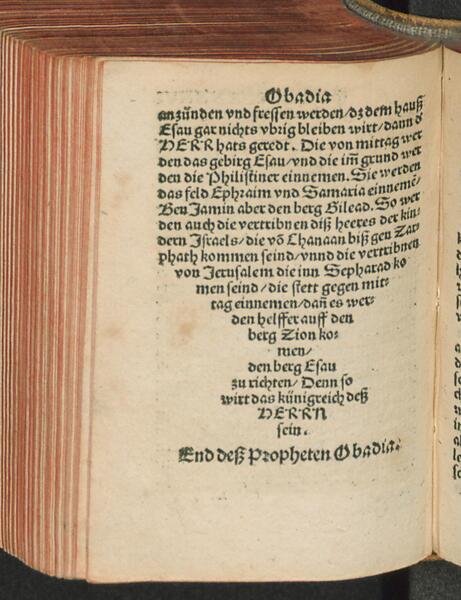 Obadia
anzünden vnd fressen werden/dz dem hauß
Esau gar nichts vbrig bleiben wirt/dann ð
HERR hats geredt. Die von mittag wer
den das gebirg Esau/vnd die im̃ grund wer
den die Philistiner einnemen. Sie werden
das feld Ephraim vnd Samaria einnemẽ/
Ben Jamin aber den berg Gilead. So wer
den auch die vertribnen diß heeres der kin-
dern Jsraels/die võ Chanaan biß gen Zar-
phath kommen seind/vnnd die vertribnen
von Jerusalem die inn Sepharad ko
men seind/die stett gegen mit-
tag einnemen/dañ es wer-
den helffer auff den
berg Zion ko-
men/
den berg Esau
zu richten/Denn so
wirt das künigreich deß
HERRN
sein.
End deß Propheten Obadia.